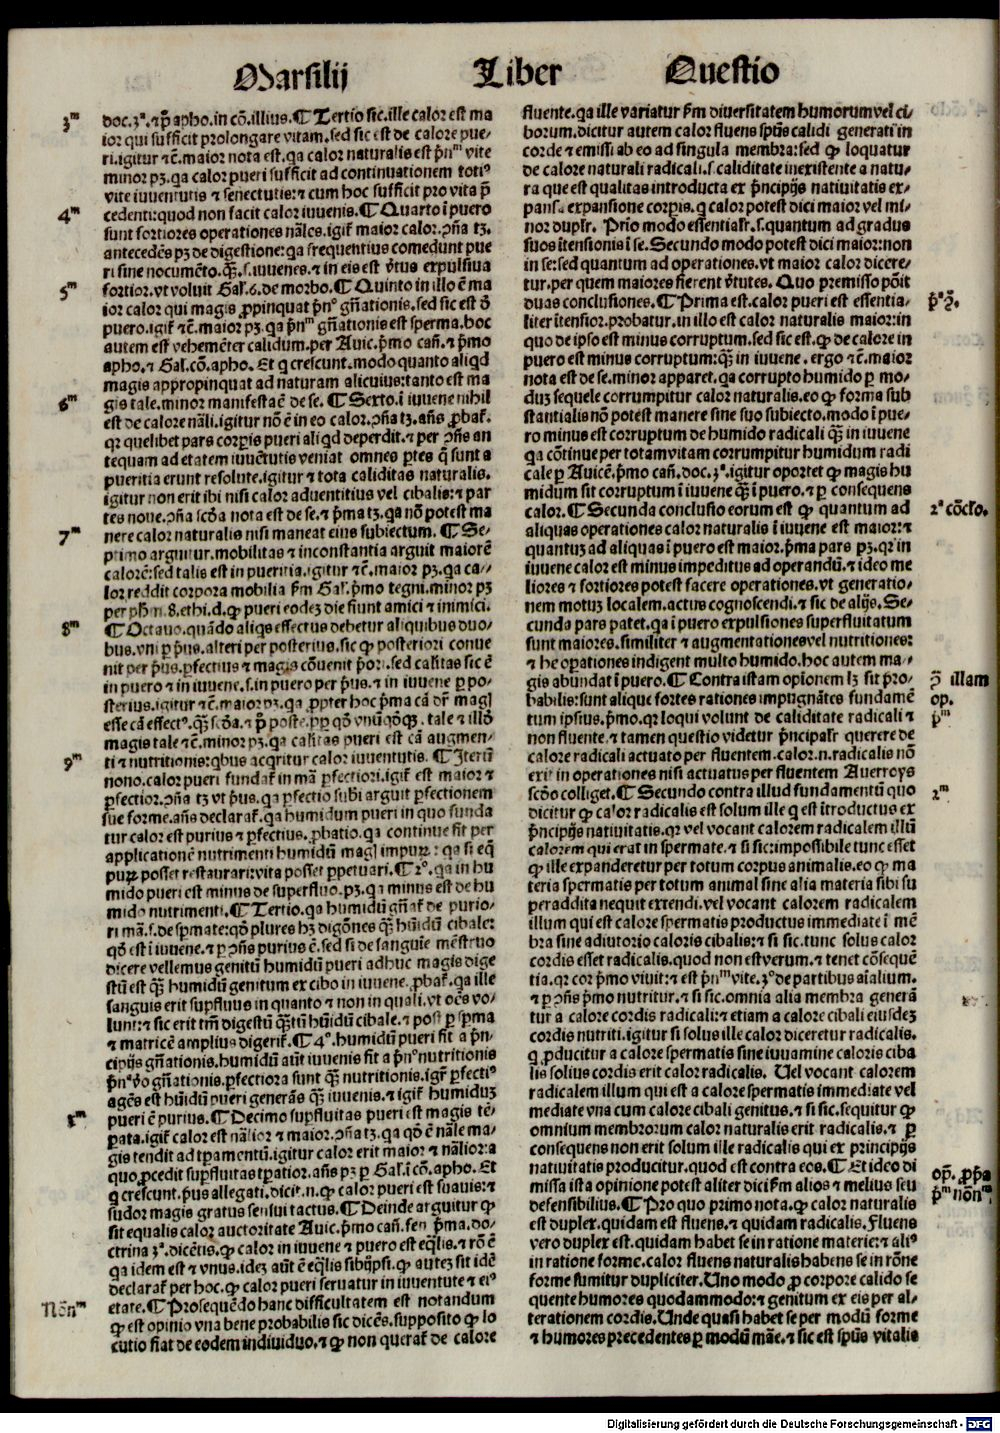 Marsilij Liber Questio
3ᵐ
doc. 3ª. ⁊ p̄ apho. in cō. illius. ¶ Tertio sic. ille calor est ma
ior qui sufficit prolongare vitam. sed sic est de calore pue/
ri. igitur ⁊c̄. maior nota est. qa calor naturalis est pn̄ᵐ vite
minor pꝫ. qa calor pueri sufficit ad continuationem toti⁹
vite iuuentutis ⁊ senectutis: ⁊ cum hoc sufficit pro vita p̄
4ᵐ
cedenti: quod non facit calor iuuenis. ¶ Quarto ī puero
sunt fortiores operationes nāles. igiť maior calor. ꝯn̄a tꝫ.
antecedēs pꝫ de digestione: qa frequentius comedunt pue
ri sine nocumēto. qꝫ̄. s. iuuenes. ⁊ in eis est v̄tus expulsiua
5ᵐ
fortior. vt voluit Gal. 6. de morbo. ¶ Quinto in illo ē ma
ior calor qui magis ꝓpinquat pn̄⁰ gn̄ationis. sed sic est ī
puero. igiť ⁊c̄. maior pꝫ. qa pn̄ᵐ gn̄ationis est sperma. hoc
autem est vehemēter calidum. per Auic. p̄mo cañ. ⁊ p̄mo
apho. ⁊ Gal. cō. apho. Et q crescunt. modo quanto aliqd
magis appropinquat ad naturam alicuius: tanto est ma
6ᵐ
gis tale. minor manifesta ē de se. ¶ Sexto. ī iuuene nihil
est de calore nāli. igitur nō ē in eo calor. ꝯn̄a tꝫ. an̄s ꝓbať.
qꝛ quelibet pars corpis pueri aliqd deperdit. ⁊ per ꝯn̄s an
tequam ad etatem iuuētutis veniat omnes ꝑtes q̄ sunt a
pueritia erunt resolute. igitur ⁊ tota caliditas naturalis.
igitur non erit ibi nisi calor aduentitius vel cibalis: ⁊ par
tes noue. ꝯn̄a scd̄a nota est de se. ⁊ p̄ma tꝫ. qa nō potest ma
7ᵐ
nere calor naturalis nisi maneat eius subiectum. ¶ Se/
ptimo arguitur. mobilitas ⁊ inconstantia arguit maiorē
calorē: sed talis est in pueritia. igitur ⁊c̄. maior pꝫ. qa ca/
lor reddit corpora mobilia ẜm Gal. p̄mo tegni. minor pꝫ
per ph̄m. 8. ethi. d. ꝙ pueri eodeꝫ die fiunt amici ⁊ inimici.
8ᵐ
¶ Octauo. quādo aliqs effectus debetur aliquibus duo/
bus. vni ꝑ p̄us. alteri per posterius. sic ꝙ posteriori conue
nit per p̄us. ꝑfectius ⁊ magis cōuenit p̄ori. sed calitas sic ē
in puero ⁊ in iuuene. s. in puero per p̄us. ⁊ in iuuene ꝑ po/
sterius. igitur ⁊c̄. maior pꝫ. qa ꝓpter hoc p̄ma cā dr̄ magꝭ
esse cā effect⁹. qꝫ̄ scd̄a. ⁊ p̄ poste. ꝓpꝑ qō vnūqōqꝫ. tale ⁊ illō
magis tale ⁊c̄. minor pꝫ. qa calitas pueri est cā augmen/
9ᵐ
ti ⁊ nutritionis: qbus acqritur calor iuuentutis. ¶ Iterū
nono. calor pueri fundať in mā ꝑfectiori. igiť est maior ⁊
ꝑfectior. ꝯn̄a tꝫ vt p̄us. qa ꝑfectio subī arguit ꝑfectionem
sue forme. an̄s declarať. qa humidum pueri in quo funda
tur calor est purius ⁊ ꝑfectius. ꝓbatio. qa continue fit per
applicationē nutrimenti humidū magꝭ impuꝝ: qa si eq̄
puꝝ posset restaurari: vita posset ꝑpetuari. ¶ 2⁰. qa in hu
mido pueri est minus de superfluo. pꝫ. qa minus est de hu
mido nutrimenti. ¶ Tertio. qa humidū gn̄ať de purio/
ri mā. s. de spmate: qō plures hꝫ digōnes qꝫ̄ hūidū cibale:
qō est ī iuuene. ⁊ ꝑ ꝯn̄s purius ē. sed si de sanguīe mēstruo
dicere vellemus genitū humidū pueri adhuc magis dige
stū est qꝫ̄ humidū genitum ex cibo in iuuene. ꝓbať. qa ille
sanguis erit supfluus in quanto ⁊ non in quali. vt oēs vo/
lunt: ⁊ sic erit tm̄ digestū qꝫ̄tū hūidū cibale. ⁊ post ꝑ spma
⁊ matricē amplius digeriť. ¶ 4⁰. humidū pueri fit a p̄n/
cipijs gn̄ationis. humidū aūt iuuenis fit a pn̄⁰ nutritionis
pn̄ª v̄o gn̄ationis. ꝑfectiora sunt qꝫ̄ nutritionis. igr̄ ꝑfecti⁹
agēs est hūidū pueri generās qꝫ̄ iuuenis. ⁊ igiť humiduꝫ
pueri ē purius. ¶ Decimo supfluitas pueri est magis tē/
ꝑata. igiť calor est nālior ⁊ maior. ꝯn̄a tꝫ. qa qō ē nāle ma/
gis tendit ad tꝑamentū. igitur calor erit maior ⁊ nālior: a
quo ꝓcedit supfluitas tꝑatior. an̄s pꝫ ꝑ Gal. ī cō. apho. Et
q crescunt. p̄us allegati. dicit. n. ꝙ calor pueri est suauis: ⁊
sudor magis gratus sensui tactus. ¶ Deinde arguitur ꝙ
sit equalis calor auctoritate Auic. p̄mo cañ. fen p̄ma. do/
ctrina 3ª. dicētis. ꝙ calor in iuuene ⁊ puero est eq̄lis. ⁊ rō ē
qa idem est ⁊ vnus. ideꝫ aūt ē eq̄lis sibijpsi. ꝙ auteꝫ sit idē
declarať per hoc. ꝙ calor pueri seruatur in iuuentute ⁊ ei⁹
Nōnᵐ
etate. ¶ Prosequēdo hanc difficultatem est notandum
ꝙ est opinio vna bene probabilis sic dicēs. supposito ꝙ lo
cutio fiat de eodem indiuiduo. ⁊ ꝙ non querať de calore
fluente. qa ille variatur ẜm diuersitatem humorum vel ci/
borum. dicitur autem calor fluens spūs calidi generati in
corde ⁊ emissi ab eo ad singula membra: sed ꝙ loquatur
de calore naturali radicali. s. caliditate inexistente a natu/
ra que est qualitas introducta ex p̄ncipijs natiuitatis ex/
pansa expansione corpis. q calor potest dici maior vel mi/
nor duplr̄. Prīo modo essentialr̄. s. quantum ad gradus
suos ītensionis ī se. Secundo modo potest dici maior: non
in se: sed quantum ad operationes. vt maior calor dicere/
tur. per quem maiores fierent v̄tutes. Quo premisso pōit
pª ꝯ̄.
duas conclusiones. ¶ Prima est. calor pueri est essentia/
liter ītensior. probatur. in illo est calor naturalis maior: in
quo de ipso est minus corruptum. sed sic est. ꝙ de calore in
puero est minus corruptum: qꝫ̄ in iuuene. ergo ⁊c̄. maior
nota est de se. minor apparet. qa corrupto humido ꝑ mo/
duꝫ sequele corrumpitur calor naturalis. eo ꝙ forma sub
stantialis nō potest manere sine suo subiecto. modo ī pue/
ro minus est corruptum de humido radicali qꝫ̄ in iuuene
qa cōtinue per totam vitam corrumpitur humidum radi
cale ꝑ Auicē. p̄mo cañ. doc. 3ª. igitur oportet ꝙ magis hu
midum sit corruptum ī iuuene qꝫ̄ ī puero. ⁊ ꝑ consequens
2ª cōclo.
calor. ¶ Secunda conclusio eorum est ꝙ quantum ad
aliquas operationes calor naturalis ī iuuene est maior: ⁊
quantuꝫ ad aliquas ī puero est maior. p̄ma pars pꝫ. qꝛ in
iuuene calor est minus impeditus ad operandū. ⁊ ideo me
liores ⁊ fortiores potest facere operationes. vt generatio/
nem motuꝫ localem. actus cognoscendi. ⁊ sic de alijs. Se/
cunda pars patet. qa ī puero expulsiones superfluitatum
sunt maiores. similiter ⁊ augmentationes vel nutritiones:
⁊ he opationes indigent multo humido. hoc autem ma/
ꝯ̄ illam op.
gis abundat ī puero. ¶ Contra istam opionem lꝫ sit pro/
habilis: sunt alique fortes rationes impugnātes fundamē
pᵐ
tum ipsius. p̄mo. qꝛ loqui volunt de caliditate radicali ⁊
non fluente. ⁊ tamen questio videtur p̄ncipalr̄ querere de
calore radicali actuato per fluentem. calor. n. radicalis nō
exit in operationes nisi actuatus per fluentem Auerroys
2ᵐ
scd̄o colliget. ¶ Secundo contra illud fundamentū quo
dicitur ꝙ calor radicalis est solum ille q est ītroductus ex
p̄ncipijs natiuitatis. qꝛ vel vocant calorem radicalem illū
calorem qui erat in spermate. ⁊ si sic: impossibile tunc esset
ꝙ ille expanderetur per totum corpus animalis. eo ꝙ ma
teria spermatis per totum animal sine alia materia sibi su
peraddita nequit extendi. vel vocant calorem radicalem
illum qui est calore spermatis productus immediate ī mē
bra sine adiutorio caloris cibalis: ⁊ si sic. tunc solus calor
cordis esset radicalis. quod non est verum. ⁊ tenet cōsequē
tia. qꝛ cor p̄mo viuit: ⁊ est pn̄ᵐ vite. 3⁰ de partibus aīalium.
⁊ ꝑ ꝯn̄s p̄mo nutritur. ⁊ si sic. omnia alia membra generā
tur a calore cordis radicali: ⁊ etiam a calore cibali eiusdeꝫ
cordis nutriti. igitur si solus ille calor diceretur radicalis.
q ꝓducitur a calore spermatis sine iuuamine caloris ciba
lis solius cordis erit calor radicalis. Uel vocant calorem
radicalem illum qui est a calore spermatis immediate vel
mediate vna cum calore cibali genitus. ⁊ si sic. sequitur ꝙ
omnium membrorum calor naturalis erit radicalis. ⁊ ꝑ
consequens non erit solum ille radicalis qui ex principijs
op̄. ꝓp̄a
natiuitatis producitur. quod est contra eos. ¶ Et ideo di
pᵐ nōnᵐ
missa ista opinione potest aliter dici ẜm alios ⁊ melius seu
defensibilius. ¶ Pro quo primo nota. ꝙ calor naturalis
est duplex. quidam est fluens. ⁊ quidam radicalis. Fluens
vero duplex est. quidam habet se in ratione materie: ⁊ ali⁹
in ratione forme. calor fluens naturalis habens se in rōne
forme sumitur dupliciter. Uno modo ꝓ corpore calido se
quente humores quodammodo: ⁊ genitum ex eis per al/
terationem cordis. Unde quasi habet se per modū forme
⁊ humores precedentes ꝑ modū māe. ⁊ sic est spūs vitalis
Digitalisierung gefördert durch die Deutsche Forschungsgemeinschaft - DFG